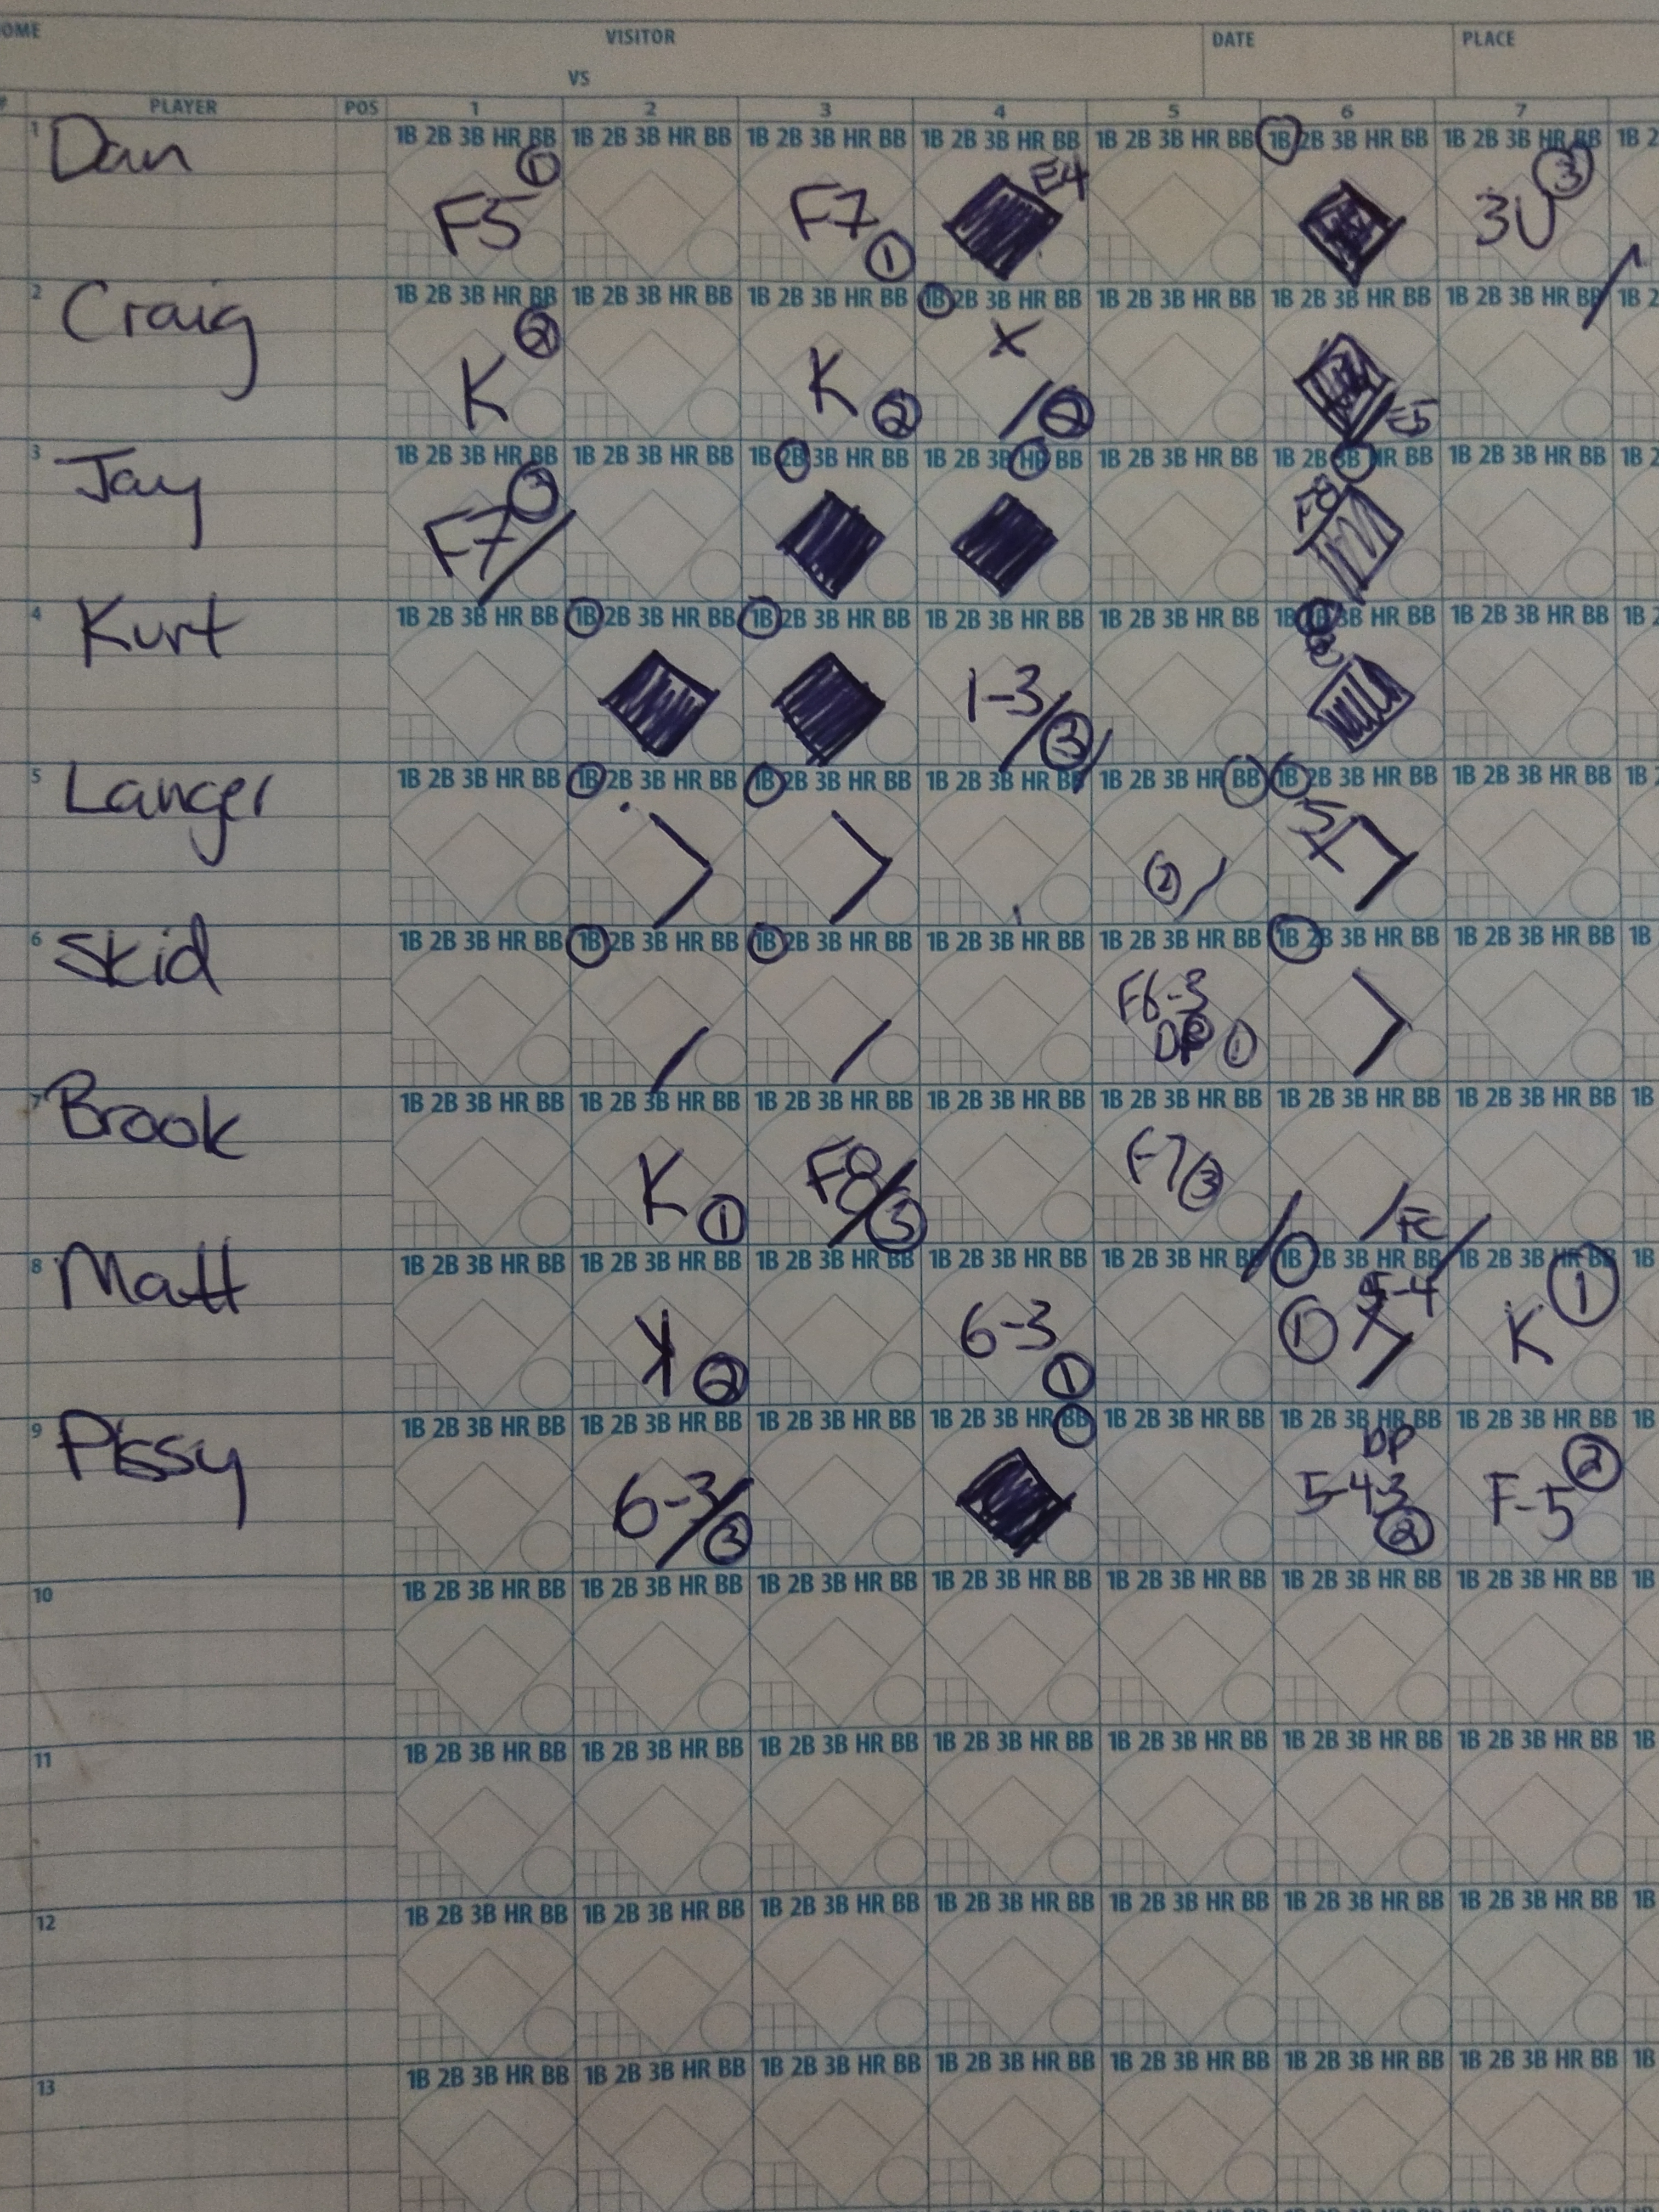 OME VISITOR DATE PLACE
VS
# PLAYER POS 1 2 3 4 5 6 7
1 Dan 1B 2B 3B HR BB 1B 2B 3B HR BB 1B 2B 3B HR BB 1B 2B 3B HR BB 1B 2B 3B HR BB 1B 2B 3B HR BB 1B 2B 3B HR BB 1B 2
F5 1 F7 1 E4 3U 3
2 Craig 1B 2B 3B HR BB 1B 2B 3B HR BB 1B 2B 3B HR BB 1B 2B 3B HR BB 1B 2B 3B HR BB 1B 2B 3B HR BB 1B 2B 3B HR BB 1B 2
K 2 K 2 X 2 E5
3 Jay 1B 2B 3B HR BB 1B 2B 3B HR BB 1B 2B 3B HR BB 1B 2B 3B HR BB 1B 2B 3B HR BB 1B 2B 3B HR BB 1B 2B 3B HR BB 1B 2
F7 3 F8
4 Kurt 1B 2B 3B HR BB 1B 2B 3B HR BB 1B 2B 3B HR BB 1B 2B 3B HR BB 1B 2B 3B HR BB 1B 2B 3B HR BB 1B 2B 3B HR BB 1B 2
1-3 3
5 Langer 1B 2B 3B HR BB 1B 2B 3B HR BB 1B 2B 3B HR BB 1B 2B 3B HR BB 1B 2B 3B HR BB 1B 2B 3B HR BB 1B 2B 3B HR BB 1B 2
2
6 Skid 1B 2B 3B HR BB 1B 2B 3B HR BB 1B 2B 3B HR BB 1B 2B 3B HR BB 1B 2B 3B HR BB 1B 2B 3B HR BB 1B 2B 3B HR BB 1B
F6-3
DP 1
7 Brook 1B 2B 3B HR BB 1B 2B 3B HR BB 1B 2B 3B HR BB 1B 2B 3B HR BB 1B 2B 3B HR BB 1B 2B 3B HR BB 1B 2B 3B HR BB 1B
K 1 F8 3 F7 3 FC
8 Matt 1B 2B 3B HR BB 1B 2B 3B HR BB 1B 2B 3B HR BB 1B 2B 3B HR BB 1B 2B 3B HR BB 1B 2B 3B HR BB 1B 2B 3B HR BB 1B
K 2 6-3 1 1 5-4 K 1
9 Pissy 1B 2B 3B HR BB 1B 2B 3B HR BB 1B 2B 3B HR BB 1B 2B 3B HR BB 1B 2B 3B HR BB 1B 2B 3B HR BB 1B 2B 3B HR BB 1B
DP
6-3 3 5-4-3 2 F-5 2
10 1B 2B 3B HR BB 1B 2B 3B HR BB 1B 2B 3B HR BB 1B 2B 3B HR BB 1B 2B 3B HR BB 1B 2B 3B HR BB 1B 2B 3B HR BB 1B
11 1B 2B 3B HR BB 1B 2B 3B HR BB 1B 2B 3B HR BB 1B 2B 3B HR BB 1B 2B 3B HR BB 1B 2B 3B HR BB 1B 2B 3B HR BB 1B
12 1B 2B 3B HR BB 1B 2B 3B HR BB 1B 2B 3B HR BB 1B 2B 3B HR BB 1B 2B 3B HR BB 1B 2B 3B HR BB 1B 2B 3B HR BB 1B
13 1B 2B 3B HR BB 1B 2B 3B HR BB 1B 2B 3B HR BB 1B 2B 3B HR BB 1B 2B 3B HR BB 1B 2B 3B HR BB 1B 2B 3B HR BB 1B